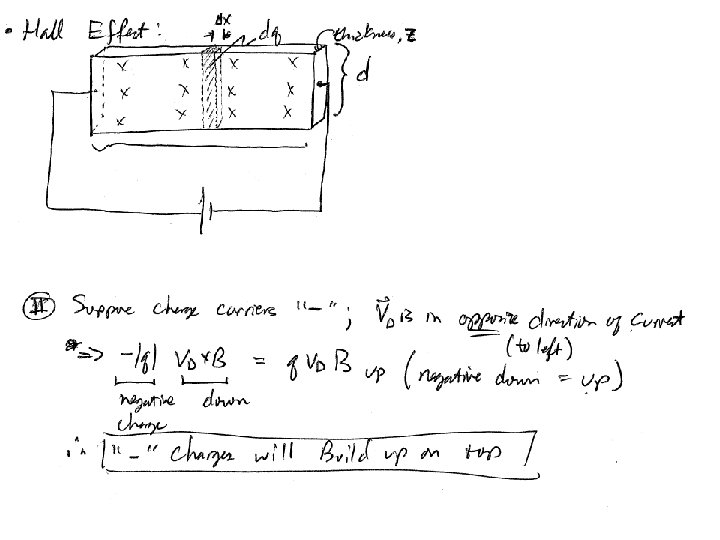 • Hall Effect:
Δx
dq
thickness, z
d
x x x x
x x x x
x x x x
II Suppose charge carriers "–"; V⃗_D is in opposite direction of current
(to left)
*=> -|q| V_D×B = q V_D B up (negative down = up)
negative down
charge
∴ "–" charges will Build up on top